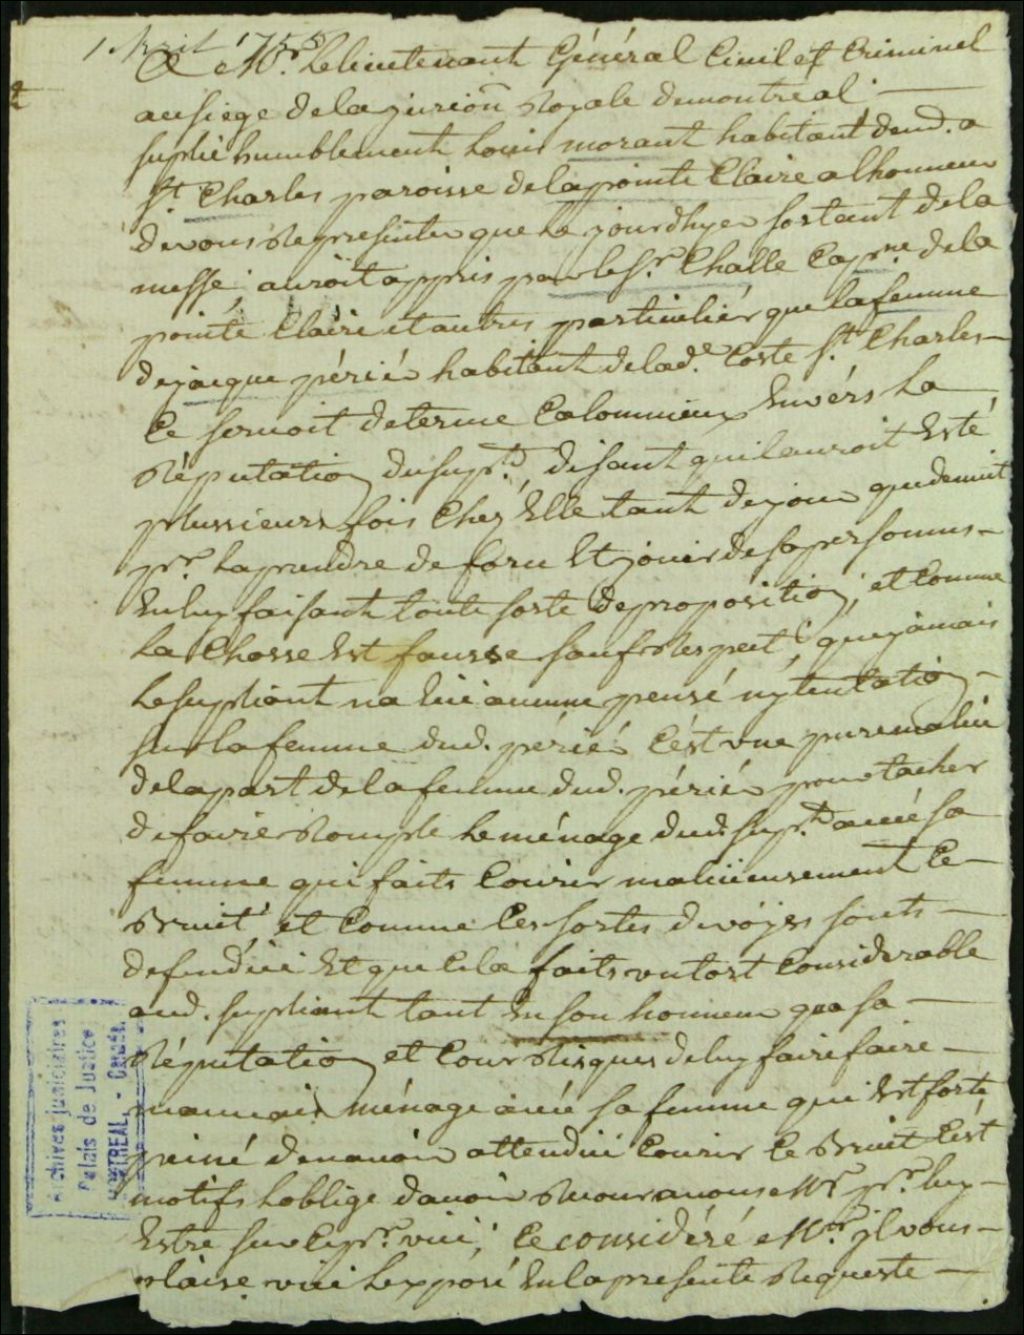 1 Avril 1755
A Mr. Le lieutenant Général Civil et Criminel
au siege de la jurion Royale de montreal
suplie humblement Louis morant habitant dud. a
St Charles paroisse de la pointe Claire a lhonneur
de vous Representer que Le jourdhyer sortant de la
messe, auroit appris par le Sr. Challe Capne. de la
pointe Claire et autres particulier que la femme
de jacque périér habitant de lad.e Coste St. Charles
Ce servoit de terme Calomnieux Envers La
Réputation du supt. disant quil auroit Esté
plussieurs fois Chez Elle tant de jour que de nuit
pr. La prendre de force Et jouir de sa personnes
En luy faisant toute sorte de proposition, et Comme
La Chosse Est fausse sauf Respect, que jamais
Le supliant na Eüe aucune pensé ny tentation
sur la femme dud. périér C'est une pure malice
de la part de la femme dud. périér pour tacher
de faire Rompre Le ménage dud. supt. avec sa
femme qui faits Courir malicieusement Ce
Bruit, et Comme Ces sortes de voÿes sonts
defendüe Et que Cela faits un tort Considerable
aud. supliant tant En son honneur qua sa
Réputation et Cour Risques de luy faire faire
mauvais ménage avec sa femme qui Est forte
peiné denavoir attendüe Courir Ce Bruit C'est
motifs Loblige davoir Recour a vous Mr. pr. luy
Estre sur Ce pr. vüe, Ce considéré Mr. jl vous
plaise vüe Lexposé En la presente Requeste
Archives judiciaires
Palais de Justice
MONTREAL, - Canada.